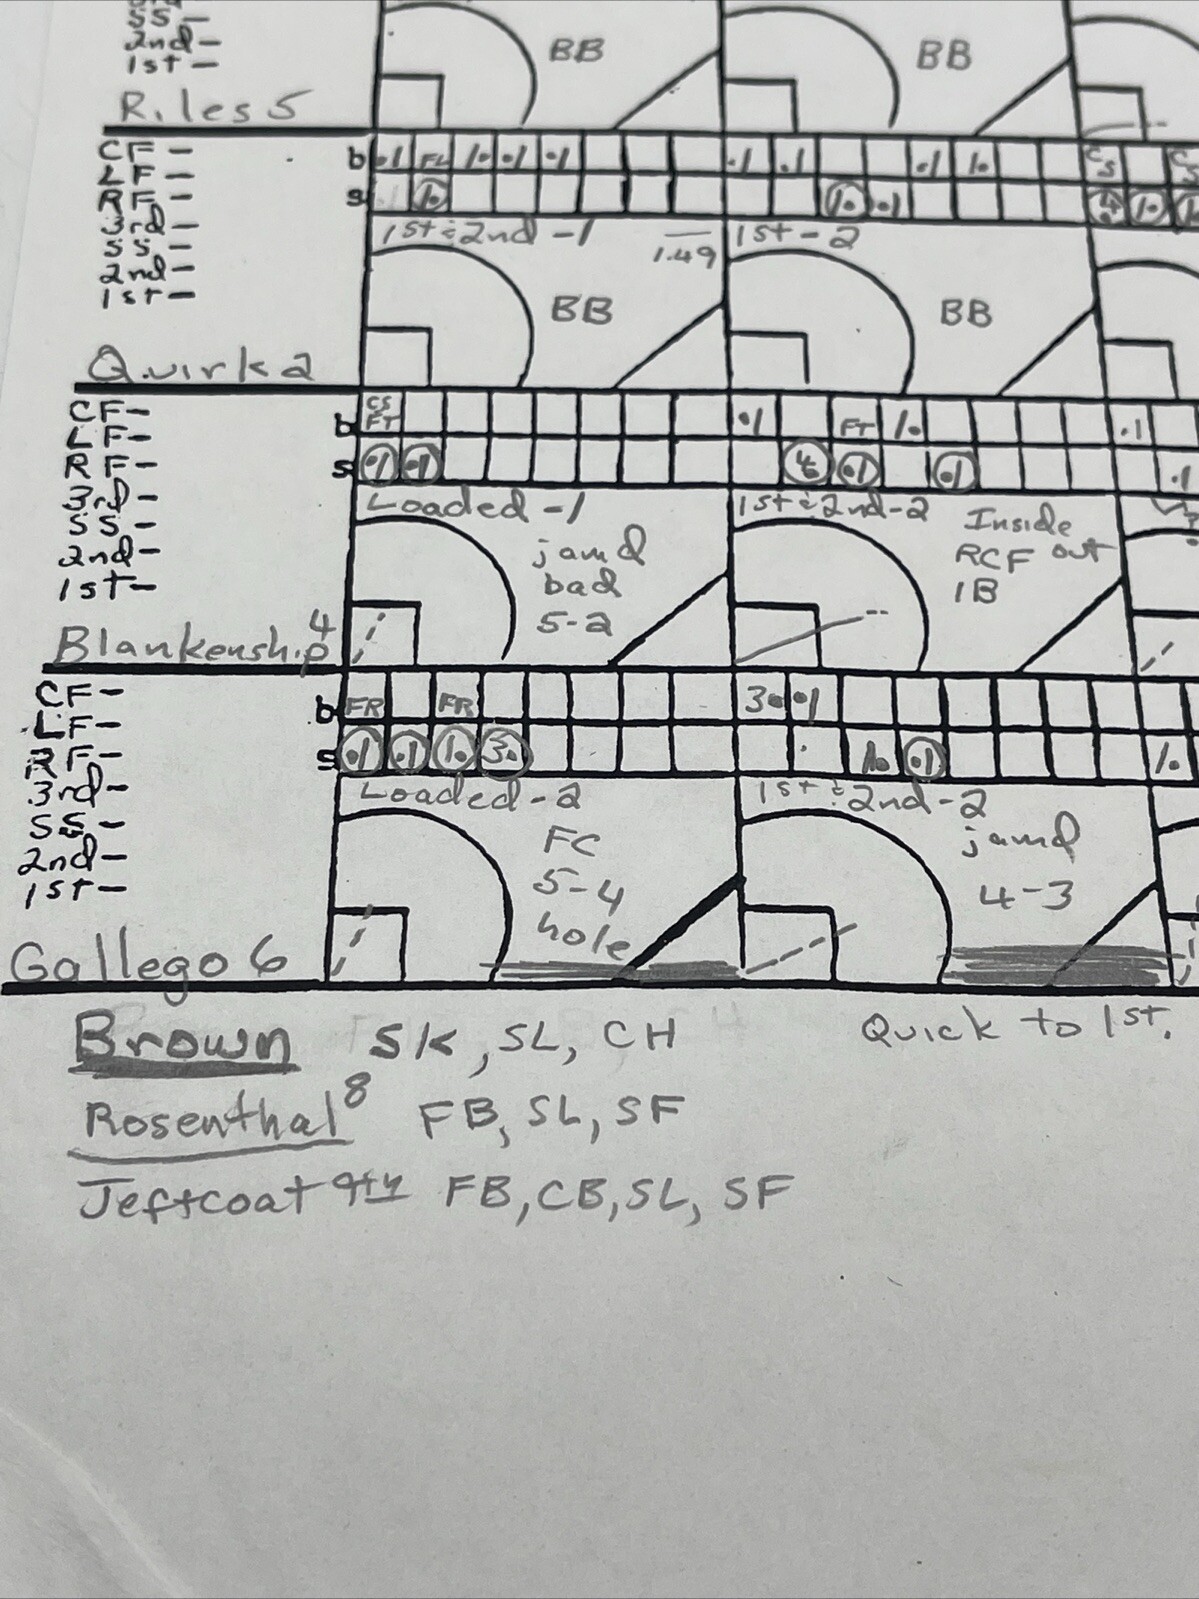 SS-
2nd-
1st-
BB
BB
Riles 5
CF-
LF-
RF-
3rd-
SS-
2nd-
1st-
b .1 FL 1. .1 .1 .1 .1 .1 1. CS
s 1. 1. .1 1.
1st & 2nd -1
1.49
1st - 2
BB
BB
Quirk 2
CF-
LF-
RF-
3rd-
SS-
2nd-
1st-
CS
b FT .1 FT 1. .1
s .1 .1 .1 .1 .1
Loaded -1
1st & 2nd - 2
jamd
bad
5-2
Inside
RCF out
1B
Blankenship 4
CF-
LF-
RF-
3rd-
SS-
2nd-
1st-
b FR FR 3. .1
s .1 .1 1. 3. 1. .1 1.
Loaded - 2
1st & 2nd - 2
FC
5-4
hole
jamd
4-3
Gallego 6
Brown SK, SL, CH
Quick to 1st.
Rosenthal 8 FB, SL, SF
Jeffcoat 9th FB, CB, SL, SF